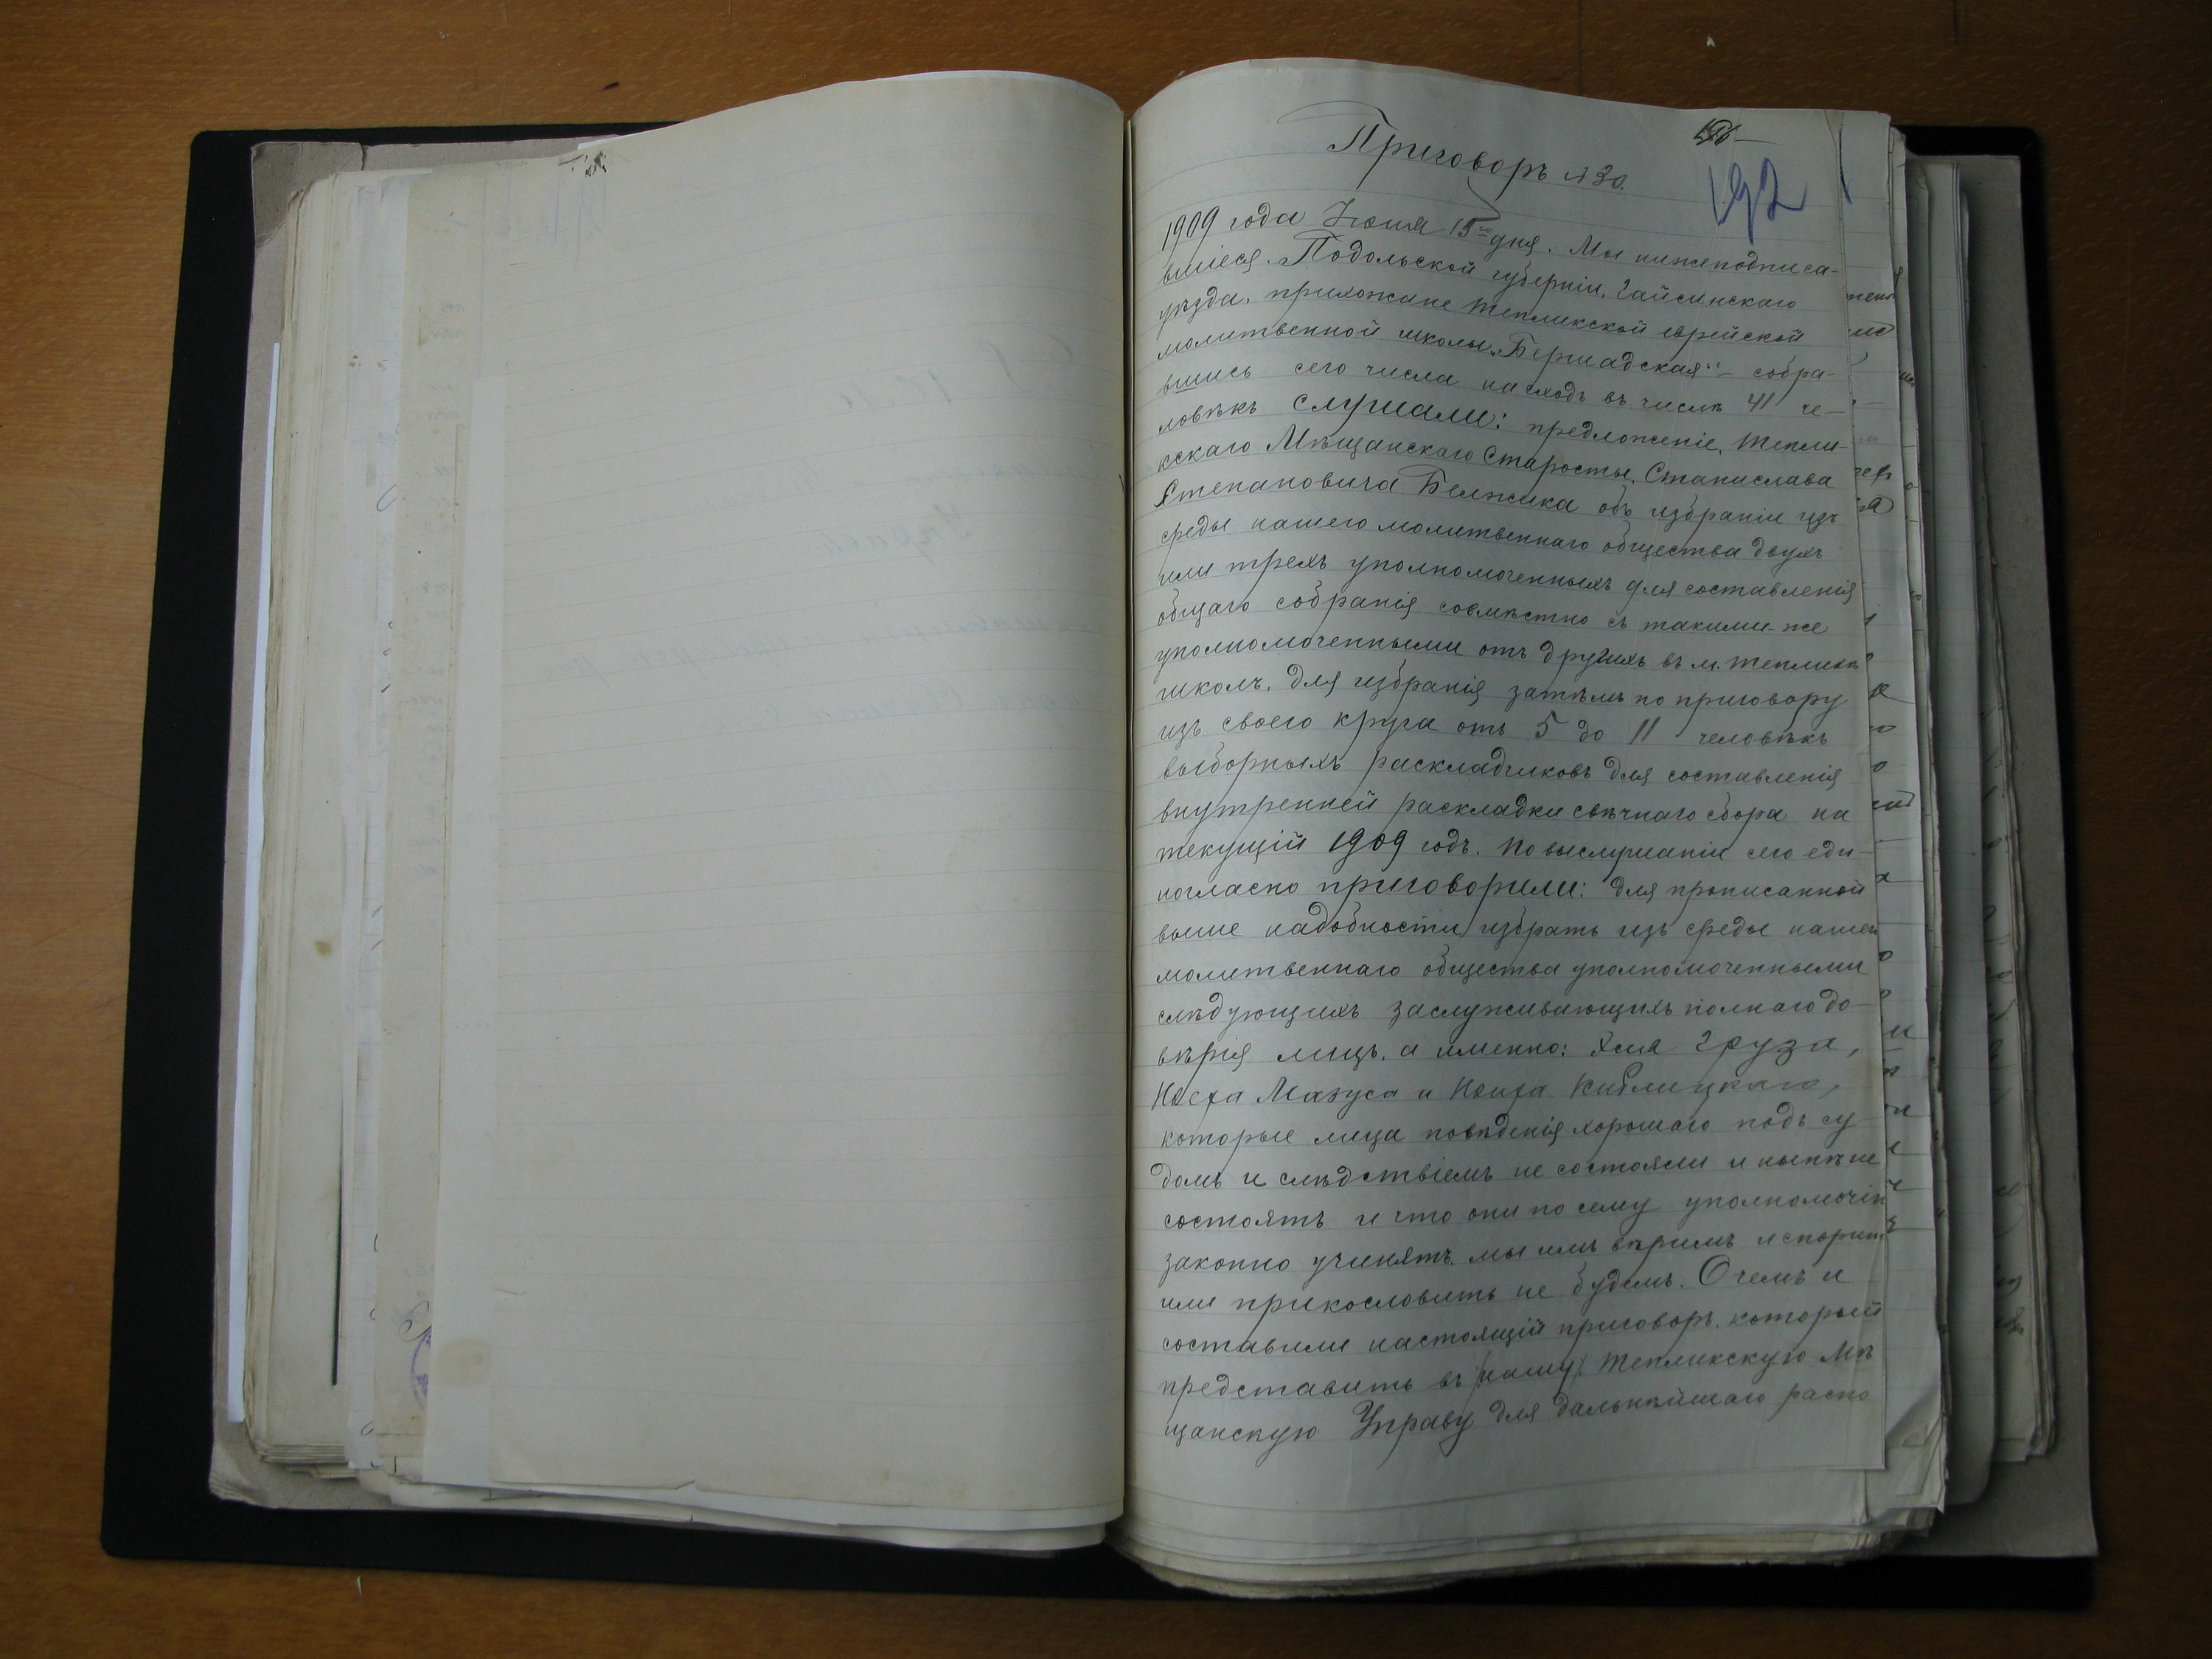 Приговоръ № 30.
192
1909 года Іюня 15го дня. Мы нижеподписа-
вшіеся. Подольской губерніи, Гайсинскаго
уѣзда, прихожане Тепликской еврейской
молитвенной школы „Бершадская“ – собра-
вшись сего числа на сходъ въ числѣ 41 че-
ловѣкъ слушали: предложеніе, Тепли-
кскаго Мѣщанскаго Старосты, Станислава
Степановича Белжика объ избраніи изъ
среды нашего молитвеннаго общества двухъ
или трехъ уполномоченныхъ для составленія
общаго собранія совмѣстно съ такими-же
уполномоченными отъ другихъ въ м. Тепликѣ
школъ, для избранія затѣмъ по приговору
изъ своего круга отъ 5 до 11 человѣкъ
выборныхъ раскладчиковъ для составленія
внутренней раскладки свѣчнаго сбора на
текущій 1909 годъ. По выслушаніи сего еди-
ногласно приговорили: для прописанной
выше надобности избрать изъ среды нашего
молитвеннаго общества уполномоченными
слѣдующихъ заслуживающихъ полнаго до-
вѣрія лицъ, а именно: Груза,
Мазуса и Киблицкаго,
которые лица поведенія хорошаго подъ су-
домъ и слѣдствіемъ не состояли и нынѣ не
состоятъ и что они по сему уполномочію
законно учинятъ, мы имъ вѣримъ и споримъ
или прикословить не будемъ. О чемъ и
составили настоящій приговоръ, который
представить въ нашу Тепликскую Мѣ
щанскую Управу для дальнѣйшаго распо